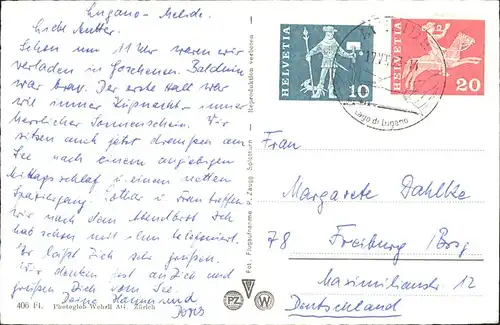 Lugano-Melide.
Liebe Mutter.
Schon um 11 Uhr waren wir
verladen in Goschenen. Balduin
war brav. Der erste Halt war
wie immer Küsnacht - immer
herrlicher Sonnenschein. Wir
sitzen auch jetzt draußen am
See nach einem
Mittagsschlaf u. einem netten
Spaziergang. Lothar u. Frau treffen
wir nach dem Abendbrot. Ich
hab schon mit ihm telefoniert.
Er läßt Dich sehr grüßen.
Wir denken fest an Dich und
grüßen Dich vom See.
Deine Hannes und
Doris
406 Fl. Photoglob-Wehrli AG. Zürich
Fot. Flugaufnahme P. Zaugg Solothurn Reproduktion verboten
PZ
W
HELVETIA
10
HELVETIA
20
Lago di Lugano
Frau
Margarete Dahlke
78 Freiburg /Brsg
Maximilianstr 12
Deutschland